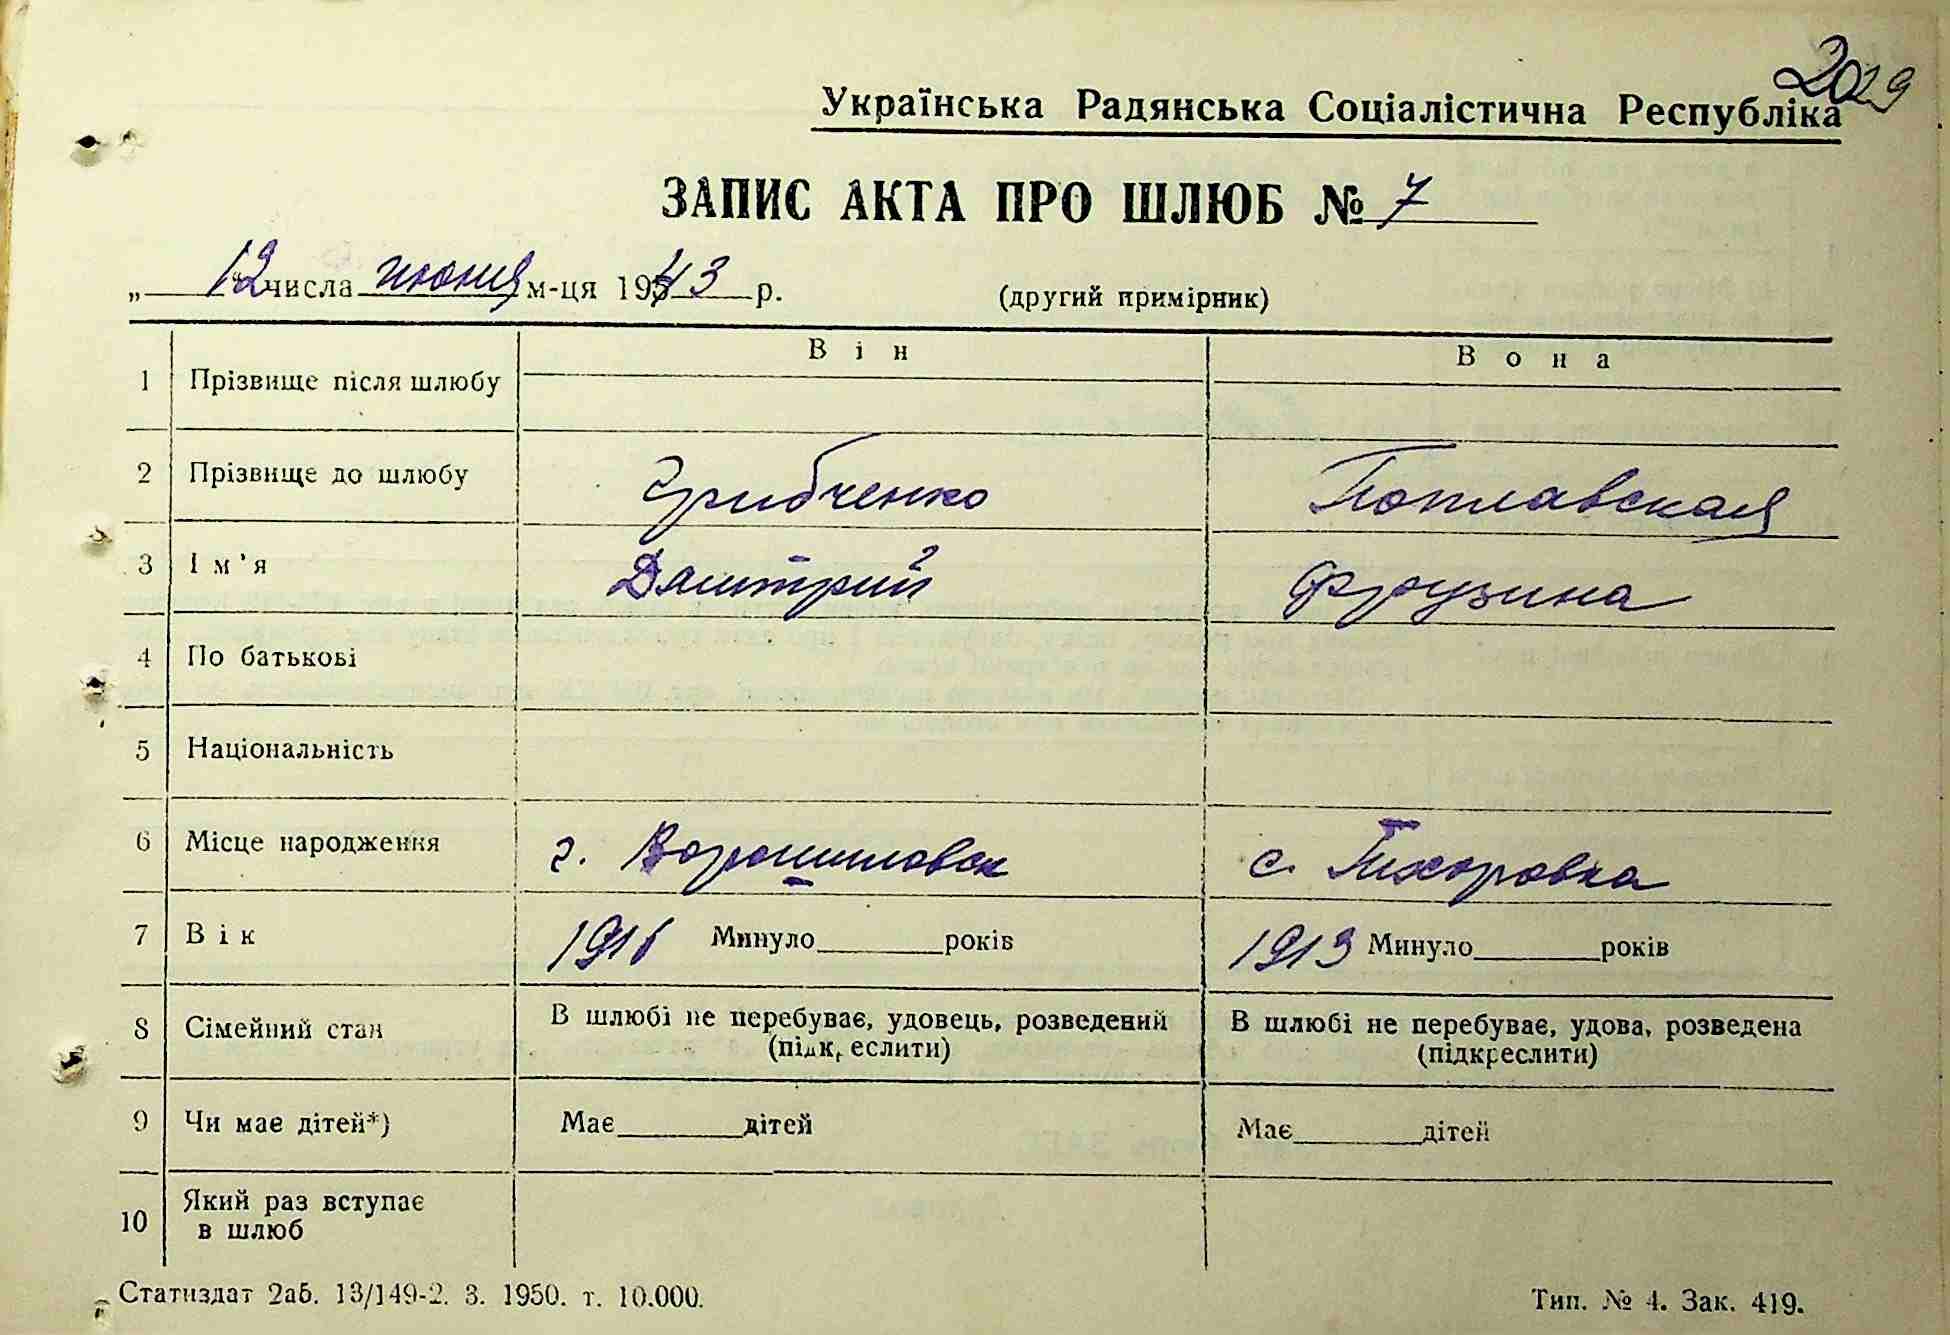 2019
Українська Радянська Соціалістична Республіка
ЗАПИС АКТА ПРО ШЛЮБ № 7
„ 12 “ числа июня м-ця 1943 р. (другий примірник)
Він Вона
1 Прізвище після шлюбу
2 Прізвище до шлюбу Грибченко Поплавская
3 Ім'я Дмитрий Фрузина
4 По батькові
5 Національність
6 Місце народження г. Ворошиловск с. Тихоровка
7 Вік 1916 Минуло______років 1913 Минуло______років
8 Сімейний стан В шлюбі не перебуває, удовець, розведений В шлюбі не перебуває, удова, розведена
(підкреслити) (підкреслити)
9 Чи має дітей*) Має______дітей Має______дітей
10 Який раз вступає
в шлюб
Статиздат 2аб. 13/149-2. 3. 1950. т. 10.000. Тип. № 4. Зак. 419.